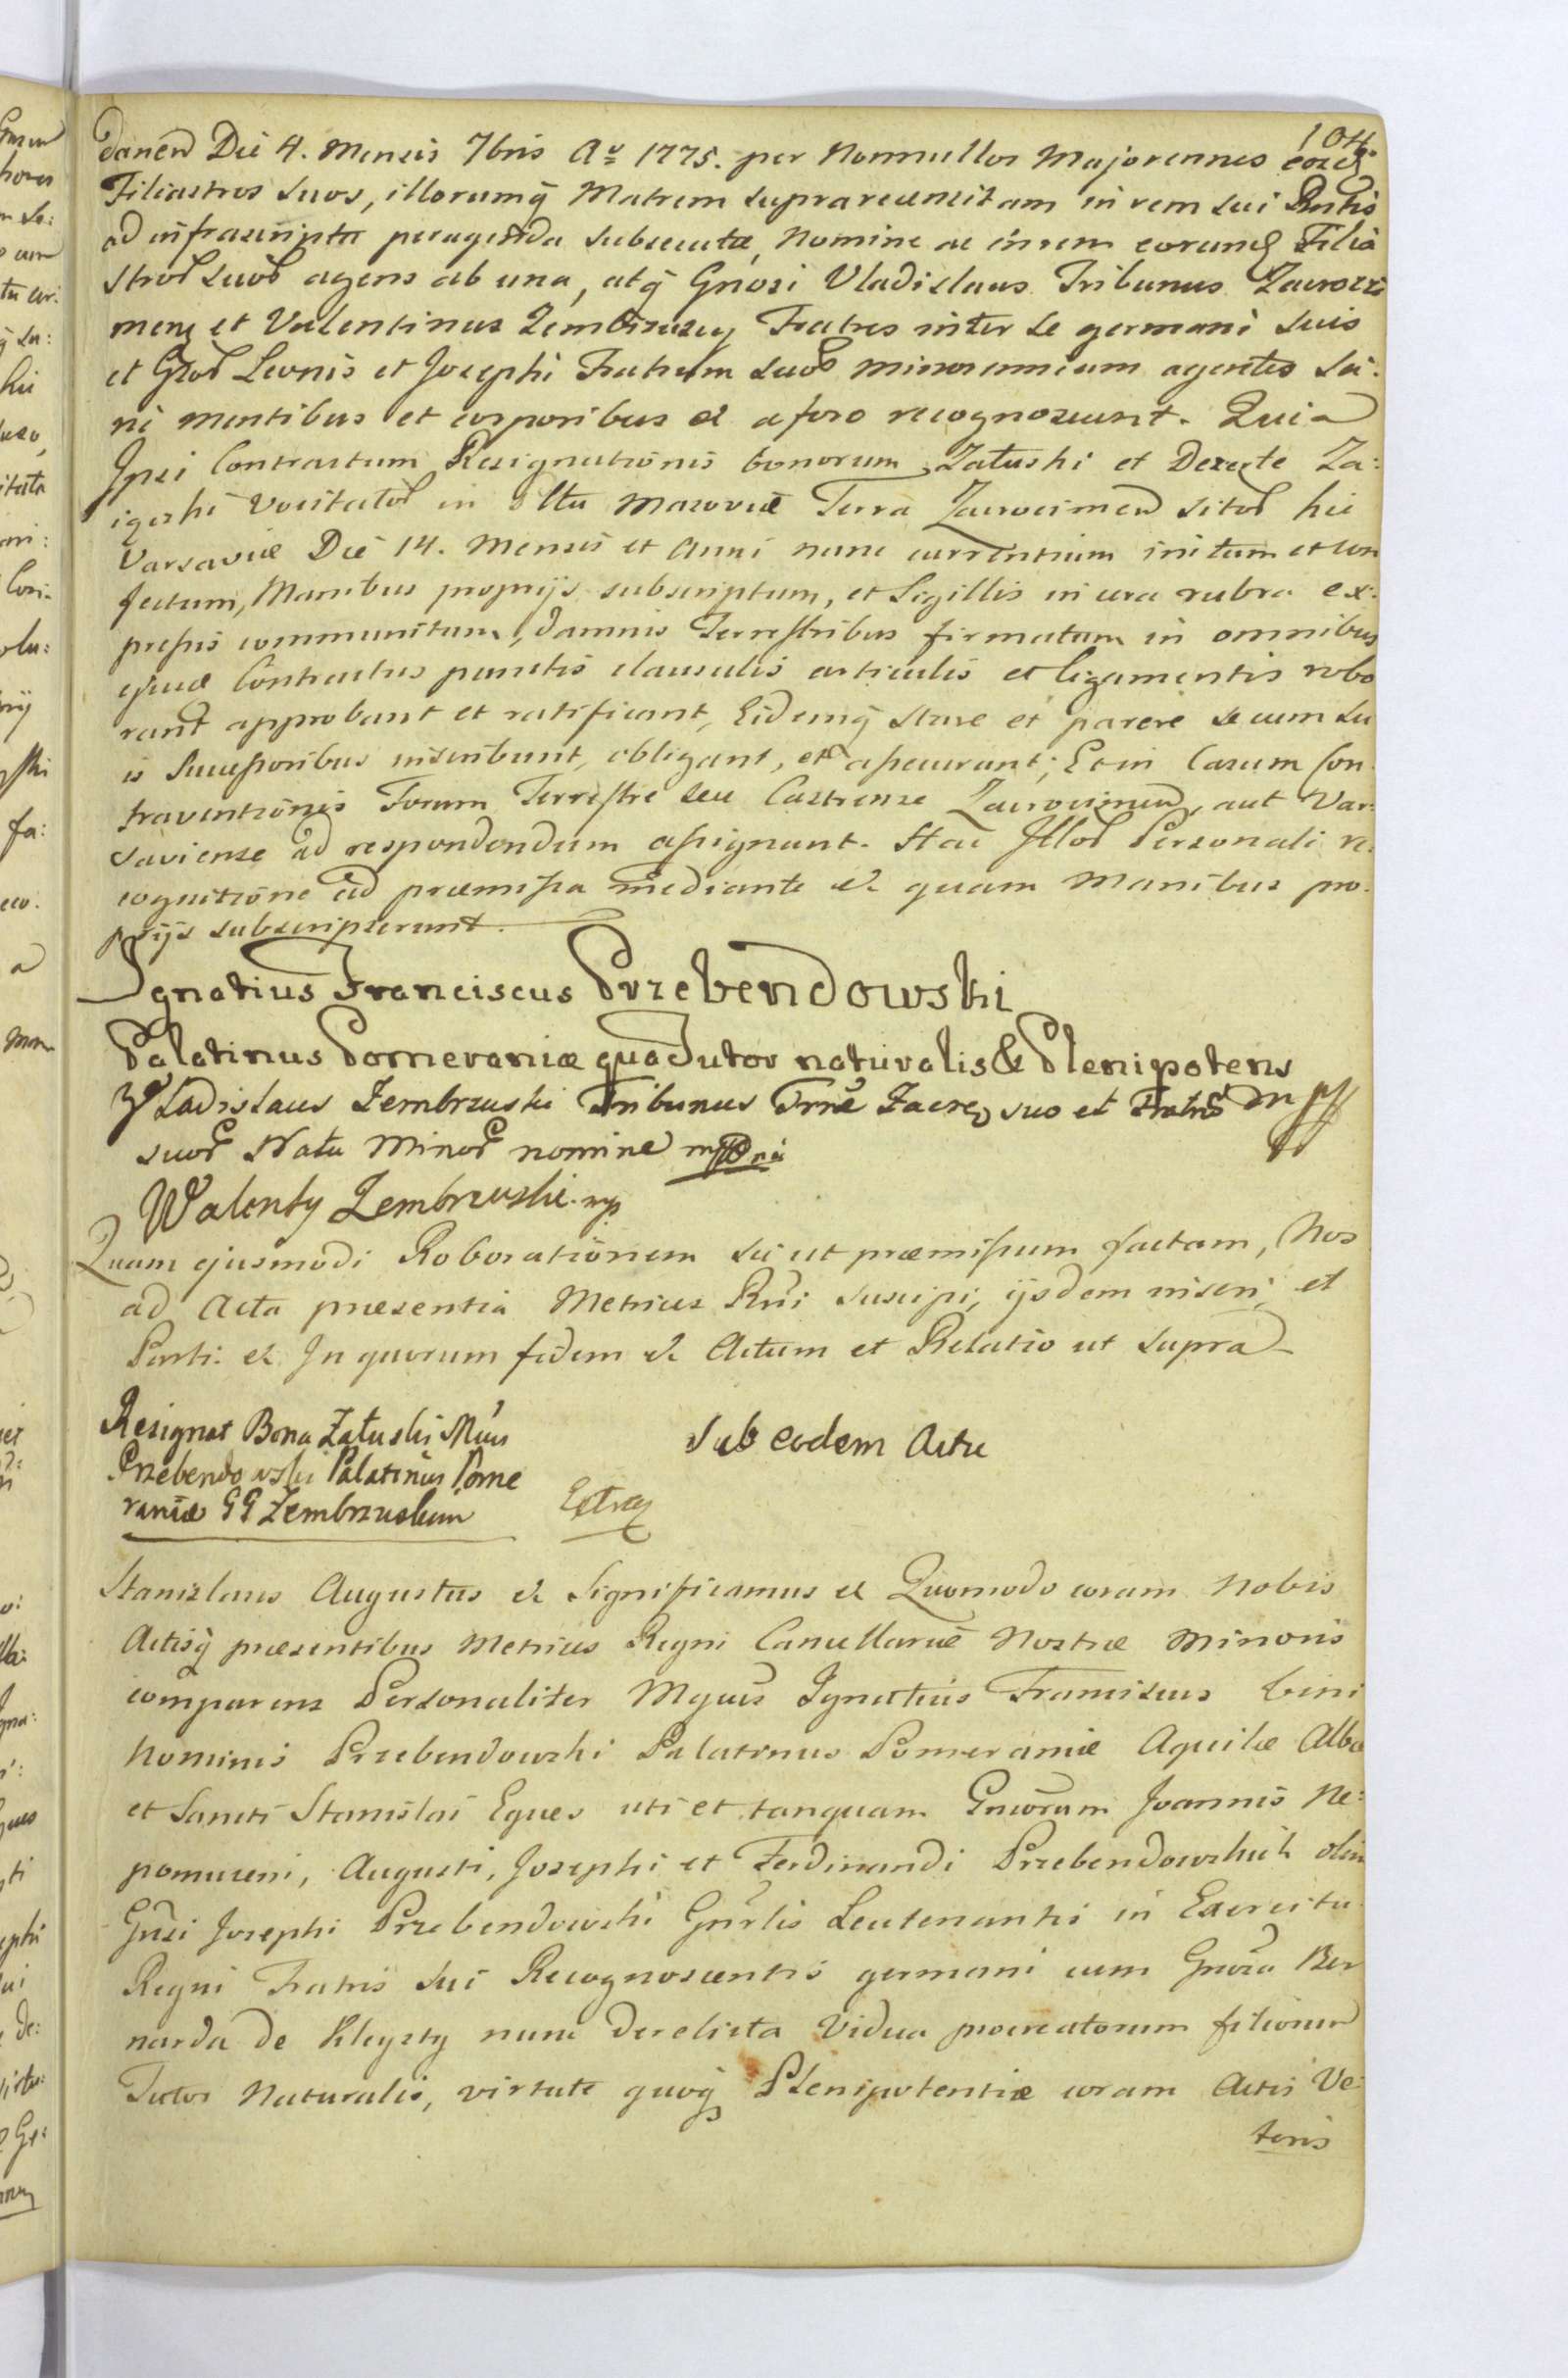 104
danen Die 4. Mensis 7bris Ao 1775. per Nonnullos Majorennes eozd
Filiastros suos, illorumq Matrem suprarecensitam in rem sui Rntis
ad infrascripta peragenda subsecutæ, Nomine ac in rem eorund Filia
strol suol agens ab una, atq Gnosi Vladislaus Tribunus Zacroczi
men et Valentinus Zembrzuscy Fratres inter se germani suis
et Gzol Leonis et Josephi Fratrum suol minorennium agentes sa:
ni mentibus et corporibus & a foro recognoscunt. Quia
Ipsi Contractum Resignationis bonorum Załuski et Dezerte Za:
igeshi vocitatol in Pltu Mazoviæ Terra Zacrocimen sitol hic
Varsaviæ Die 14. Mensis et Anni nunc currentium initum et con
fectum, Manibus proprijs subscriptum, et Sigillis in cera rubra ex:
pressis communitum, damnis Terrestribus firmatum in omnibus
ejus Contractus punctis clausulis articulis et ligamentis robo
rant approbant et ratificant, Eidemq stare et parere se cum su
is Successoribus inscribunt, obligant, et assecurant; Et in Casum Con
traventionis Forum Terrestre seu Castrense Zacrocimen, aut Var:
saviense ad respondendum assignant. Hac Illol Personali re
cognitione ad præmissa mediante & quam Manibus pro:
prijs subscripserunt.
Ignatius Franciscus Przebendowski
Palatinus Pomeraniæ qua Tutor naturalis & Plenipotens
Władisłaus Zembrzuski Tribunus Trræ Zacro suo et Fratrū mpp
suor Natu Minor nomine mppria
Walenty Zembrzuski mp
Quam ejusmodi Roborationem sic ut præmissum factam, Nos
ad Acta præsentia Metrices Rni suscipi, ijsdem inseri, et
Parti & In quorum fidem & Actum et Relatio ut supra
Resignat Bona Załuski Mcus
Przebendowski Palatinus Pome
raniæ GG Zembrzuskim
Extra
sub eodem Actu
Stanislaus Augustus & Significamus & Quomodo coram Nobis
Actisq præsentibus Metrices Regni Cancellariæ Nostræ Minoris
comparens Personaliter Mgcus Ignatius Franciscus bini
Nominis Przebendowski Palatinus Pomeraniæ Aquilæ Albæ
et Sancti Stanislai Eques uti et tanquam Gnosorum Joannis Ne:
pomuceni, Augusti, Josephi et Ferdinandi Przebendowskich olim
Gnsi Josephi Przebendowski Gnrlis Leutenantis in Exercitu
Regni Fratris sui Recognoscentis germani cum Gnosa Ber
narda de Kleysty nunc derelicta Vidua procreatorum filiorum
Tutor Naturalis, virtute quoq Plenipotentiæ coram Actis Ve:
teris